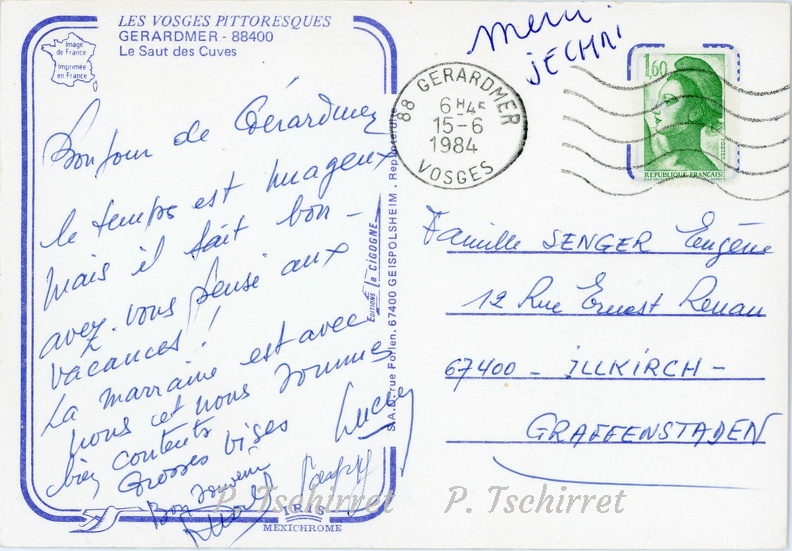 LES VOSGES PITTORESQUES
GERARDMER - 88400
Le Saut des Cuves
Image
de France
Imprimée
en France
Merci
88 GERARDMER
6 H45
15-6
1984
VOSGES
1,60
REPUBLIQUE FRANÇAISE
Bonjour de Gérardmer
le temps est nuageux
mais il fait bon -
avez-vous pensé aux
vacances !
La marraine est avec
nous et nous sommes
bien contents
Grosses bises
Bon souvenir
Editions la CIGOGNE
S.A.D. rue Forlen. 67400 GEISPOLSHEIM. Rep. interdite
Famille SENGER Eugène
12 Rue Ernest Renan
67400 - ILLKIRCH -
GRAFFENSTADEN
P. Tschirret P. Tschirret
IRIS
MEXICHROME